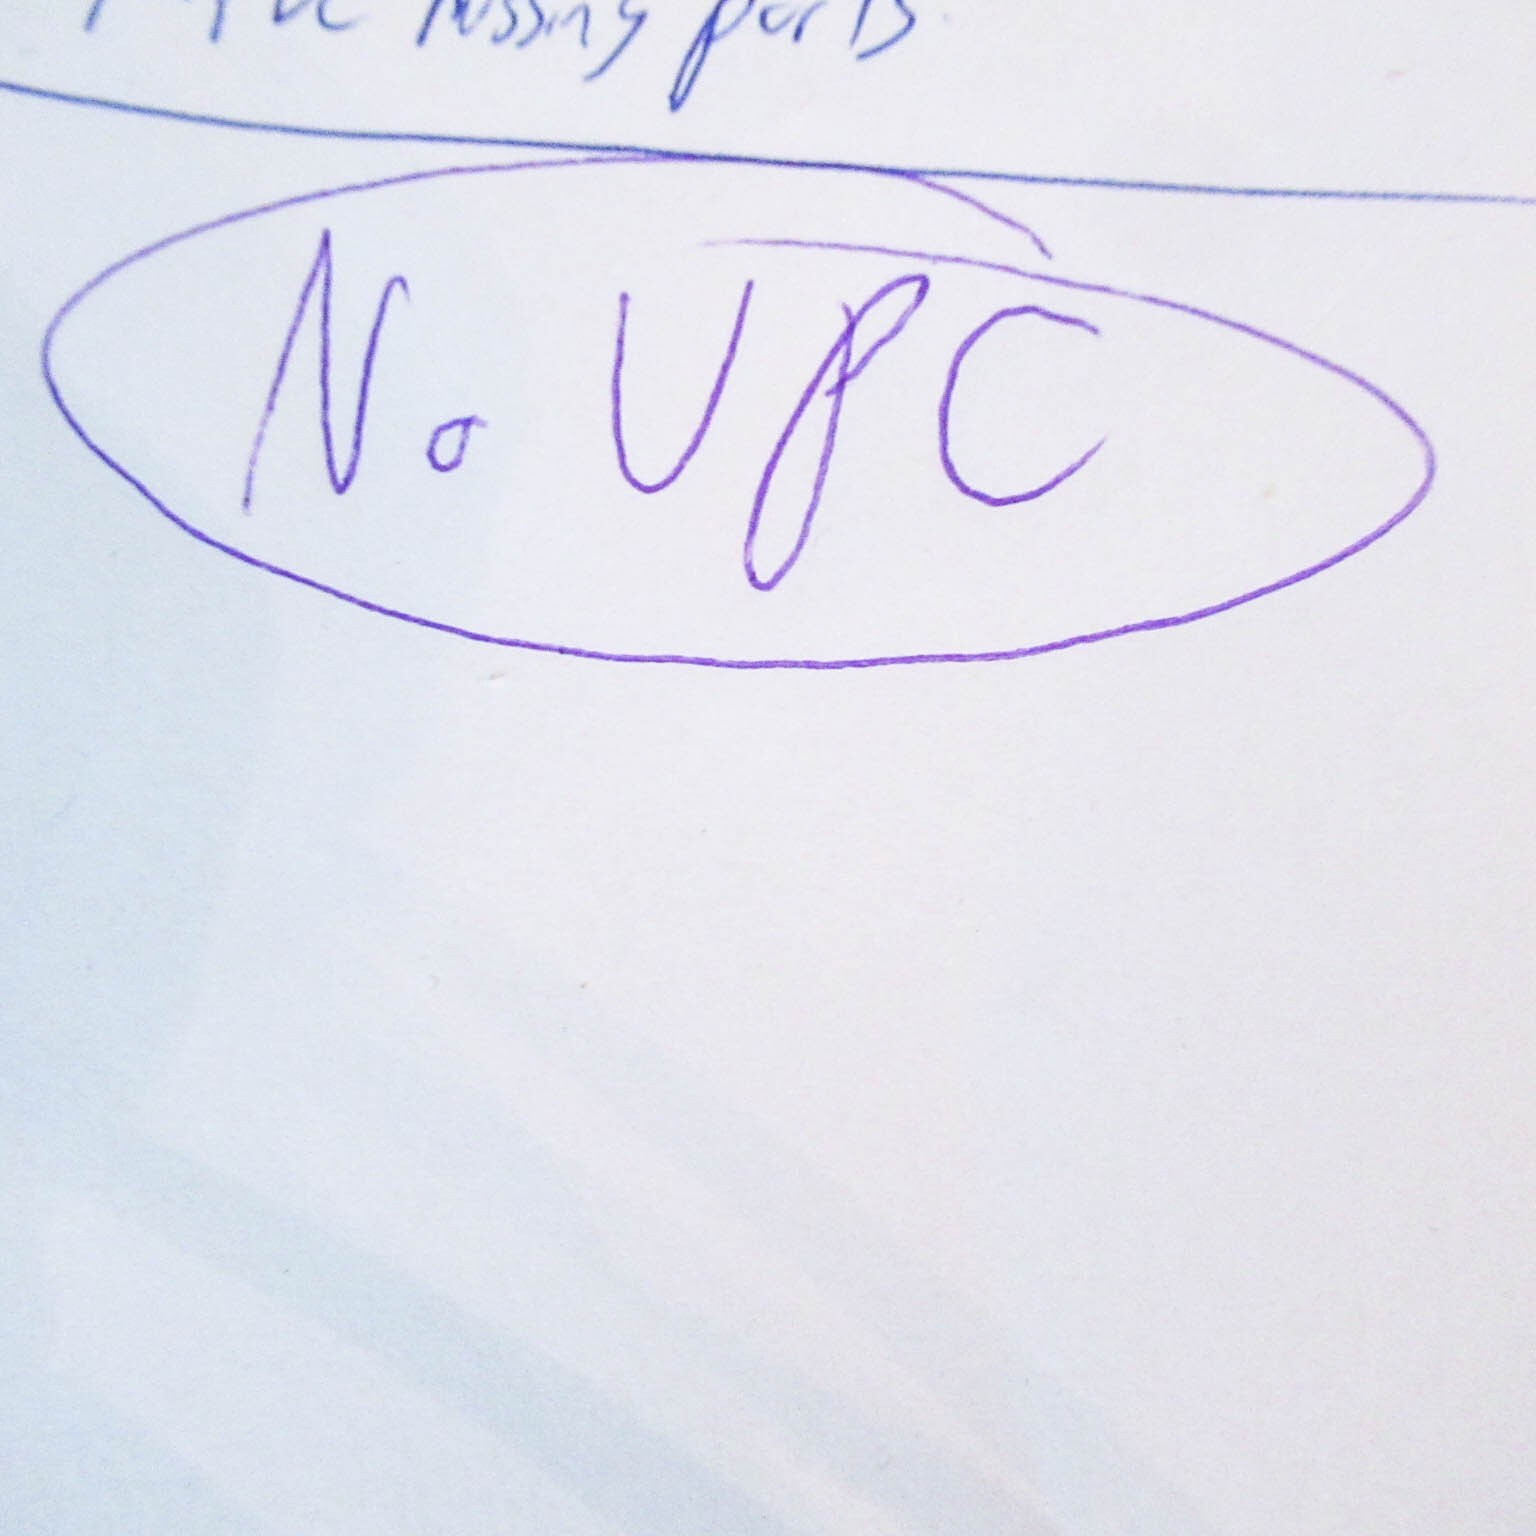 missing parts.
No UPC